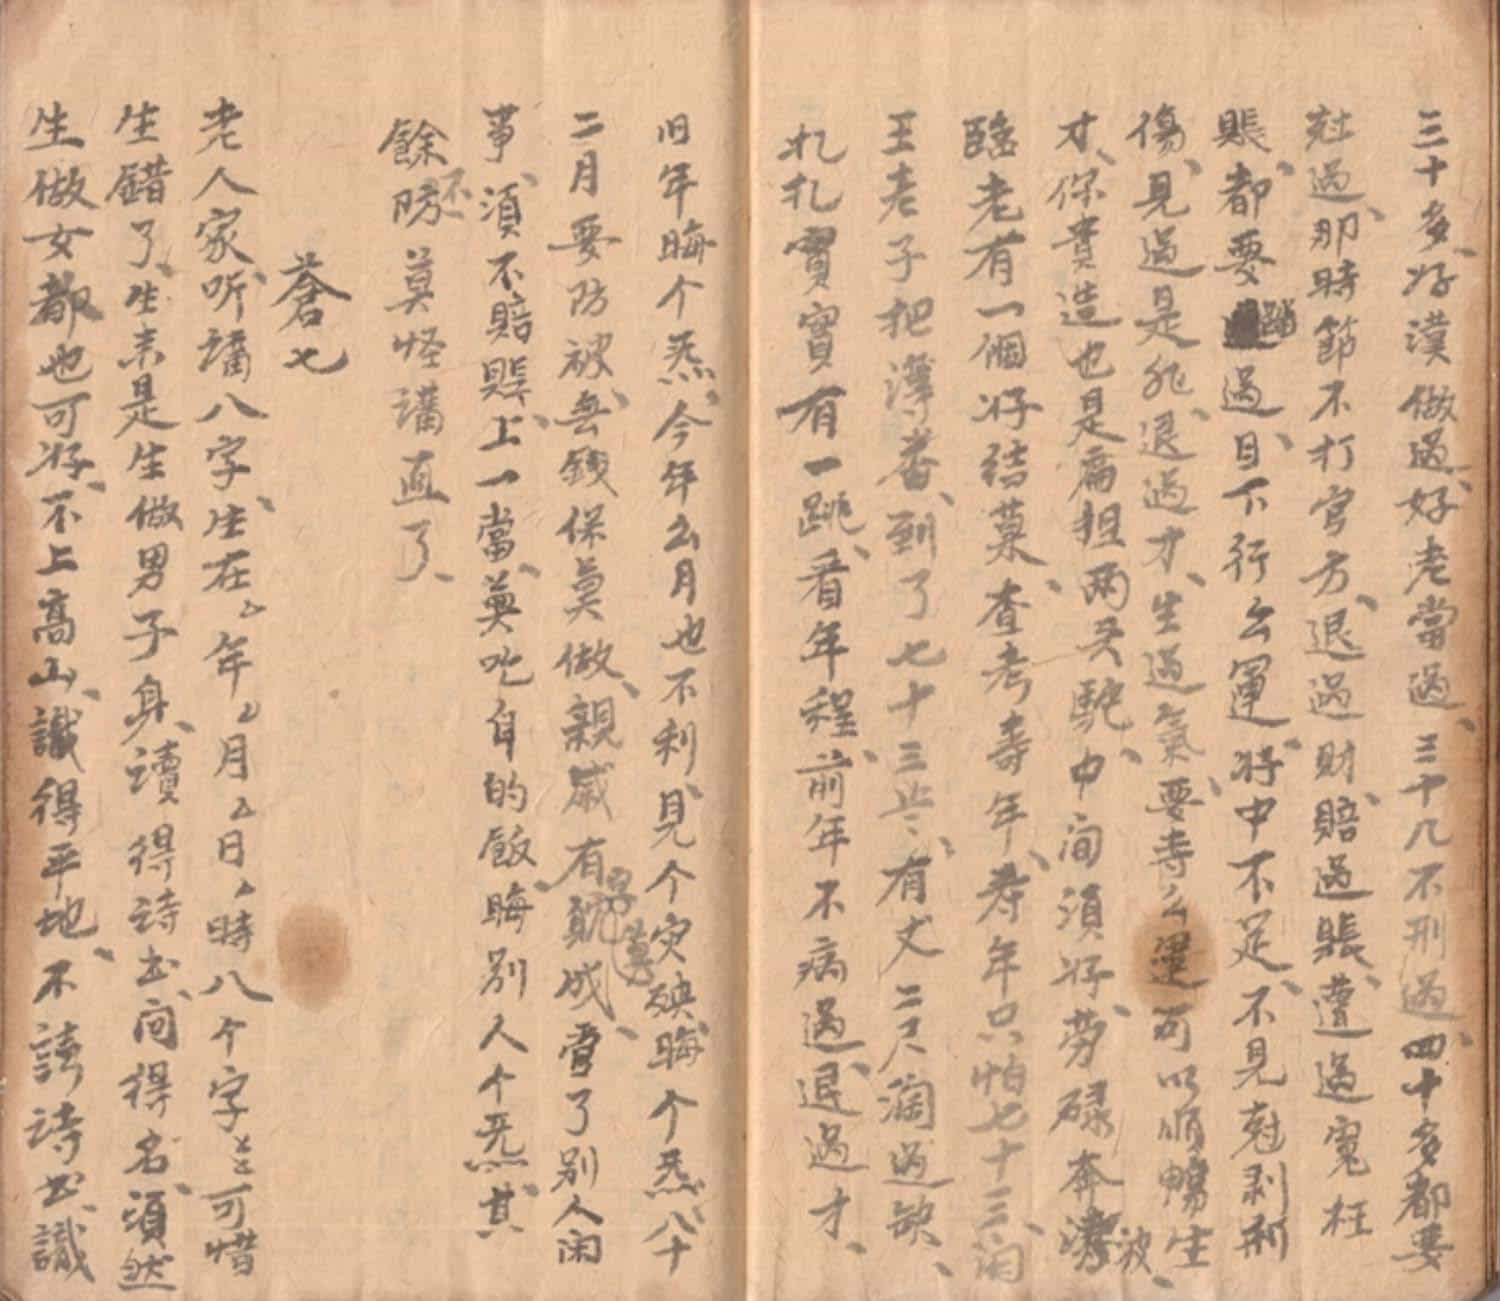 三十多、好漢做過、好老當過、三十几不刑過、四十多都要
尅過、那時節不打官方、退過財、賠過賬、遭過冤枉
賬、都要踏過、目下行么運、将中不足、不見尅剥刑
傷、見過是非、退過才、生過氣、要寿么運可以順暢生
才、保貴造也是扁担兩头駝、中间須好、劳碌奔波、
臨老有一個好结菓、查考壽年、寿年只怕七十三、闰
王老子把簿番、到了七十三岁、有丈二尺濶過缺、
扎扎實實有一跳、看年程、前年不病過、退過才、
旧年晦个炁、今年么月也不利、見个灾殃、晦个炁、八十
二月要防被、無錢保莫做、親戚有、成、管了别人闲
事、須不賠賬、上一當、莫吃自的飯、晦别人个炁、其
餘不防、莫怪講直了、
蒼七
老人家听講八字、生在厶年厶月厶日厶時八个字、可惜
生錯了、生来是生做男子身、讀得诗书、问得名、須然
生做女都也可好、不上高山、識得平地、不讀诗书、識